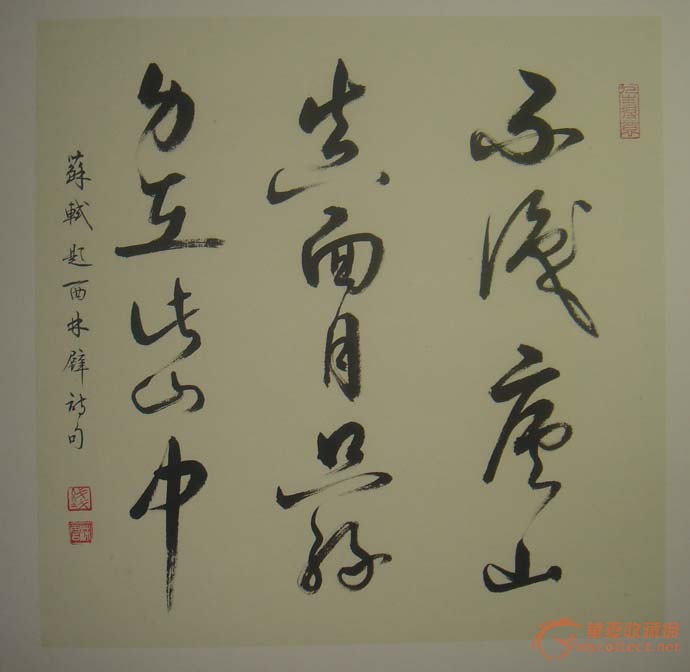 不识庐山
真面目只缘
身在此山中
蘇軾題西林壁诗句